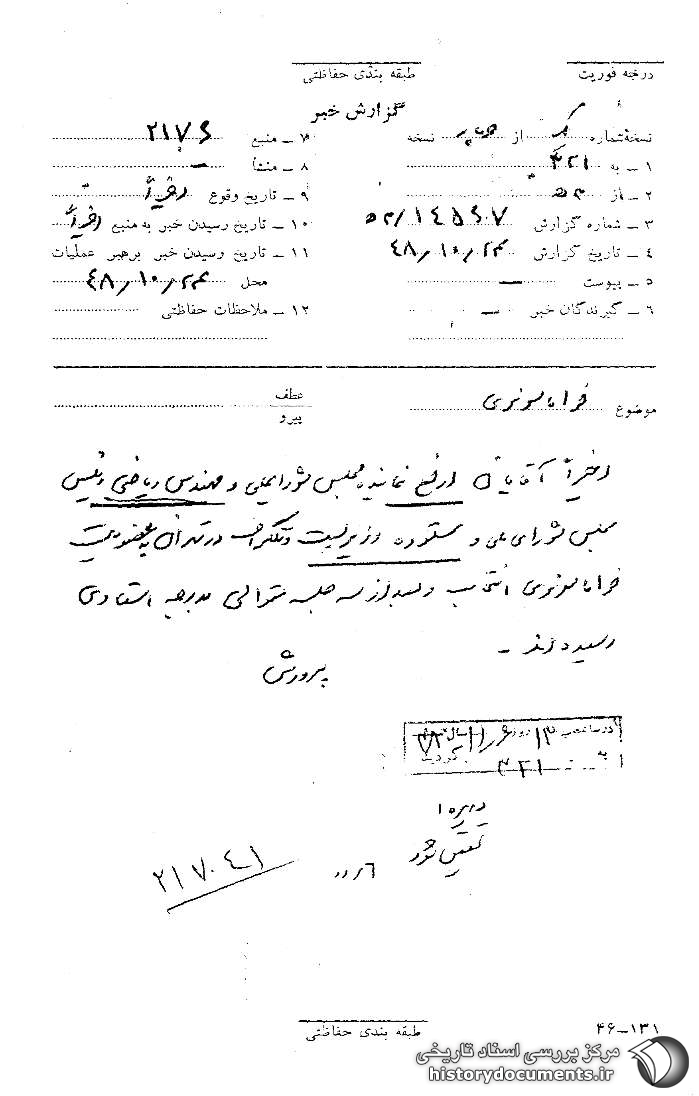 درجه فوریت
طبقه بندی حفاظتی
گزارش خبر
نسخه شماره از نسخه
۱ ـ به ۳۲۱
۲ ـ از ۵۳
۳ ـ شماره گزارش
۴ ـ تاریخ گزارش ۴۸/۱۰/۲۴
۵ ـ پیوست ـ
۶ ـ گیرندگان خبر ـ
۷ ـ منبع ۲۱۷۶
۸ ـ منشأ ـ
۹ ـ تاریخ وقوع اخیراً
۱۰ ـ تاریخ رسیدن خبر به منبع اخیراً
۱۱ ـ تاریخ رسیدن خبر برهبر عملیات
محل ۴۸/۱۰/۲۴
۱۲ ـ ملاحظات حفاظتی
موضوع فراماسونری
عطف
پیرو
اخیراً آقایان ارفع نماینده مجلس شورایملی و مهندس ریاضی رئیس
مجلس شورای ملی و ستوده وزیر پست و تلگراف در تهران به عضویت
فراماسونری انتخاب و پس از سه جلسه متوالی بدرجه استادی
رسیده‌اند ـ
پرورش
به ۳۲۱
دایره ۱
۲۱۷۰۴۱
طبقه بندی حفاظتی
۴۶-۱۳۱
مرکز بررسی اسناد تاریخی
historydocuments.ir